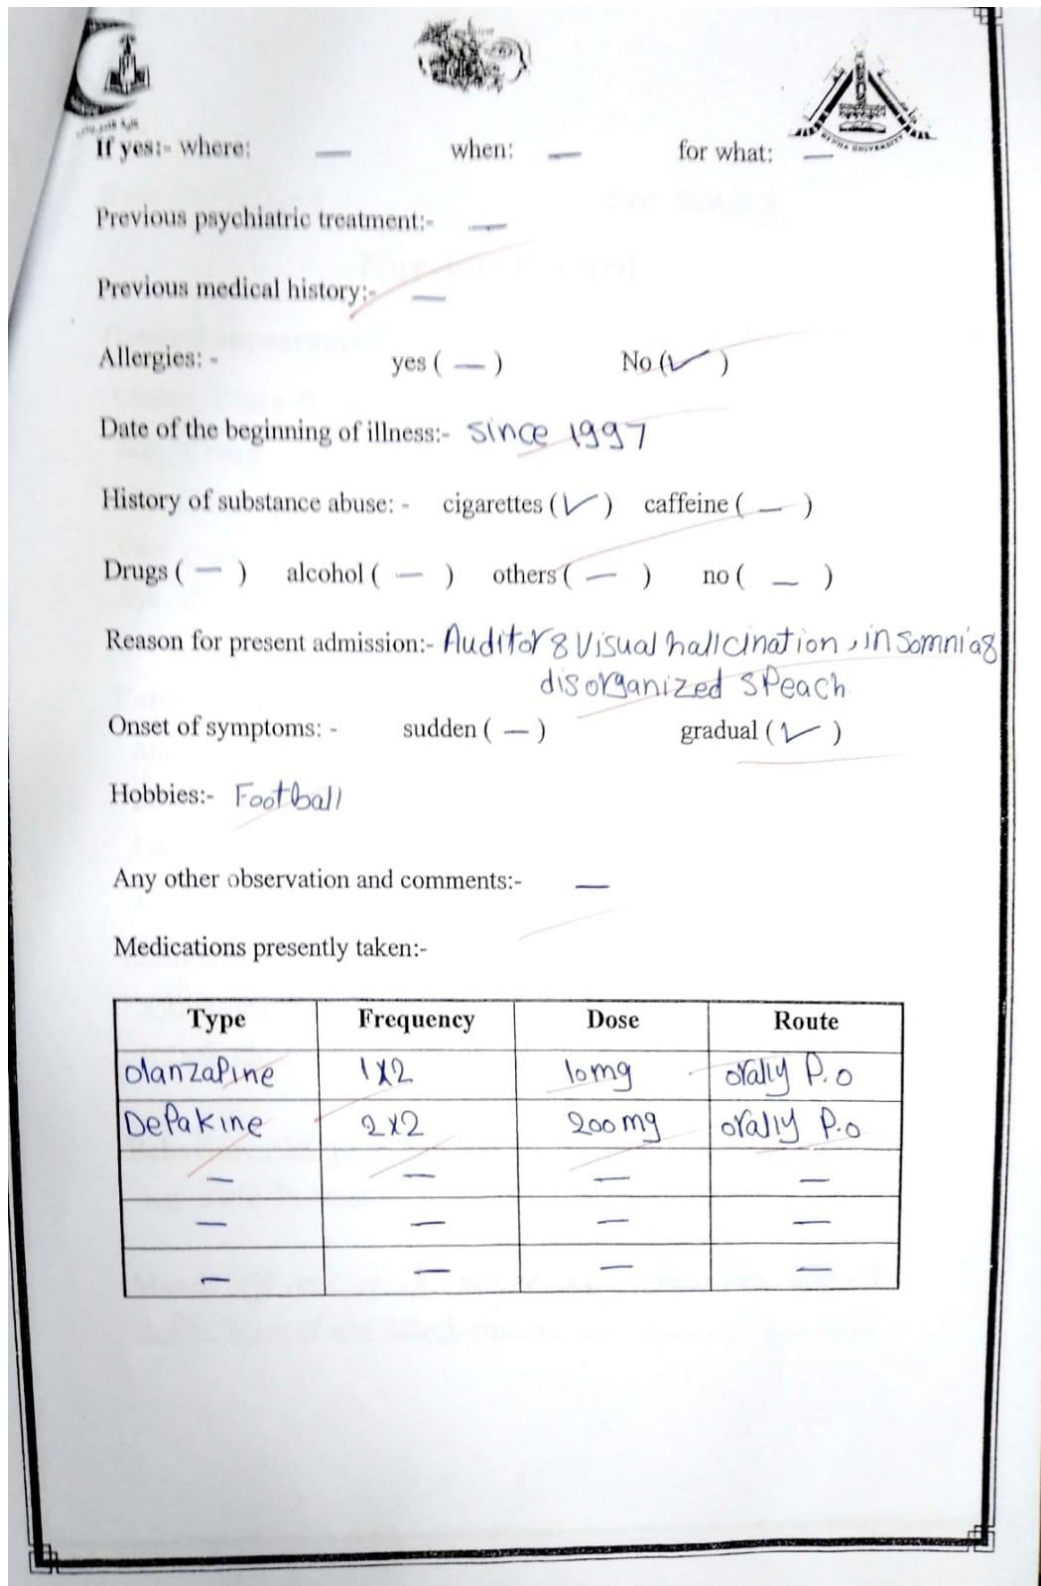 If yes:- where: — when: — for what: —
Previous psychiatric treatment:- —
Previous medical history:- —
Allergies: - yes ( — ) No (✓)
Date of the beginning of illness:- since 1997
History of substance abuse: - cigarettes (✓) caffeine ( — )
Drugs ( — ) alcohol ( — ) others ( — ) no ( — )
Reason for present admission:- Auditor & Visual hallcination , insomnia &
disorganized speach
Onset of symptoms: - sudden ( — ) gradual (✓)
Hobbies:- Football
Any other observation and comments:- —
Medications presently taken:-
Type Frequency Dose Route
olanzapine 1x2 10mg orally P.o
Depakine 2x2 200mg orally P.o
— — — —
— — — —
— — — —